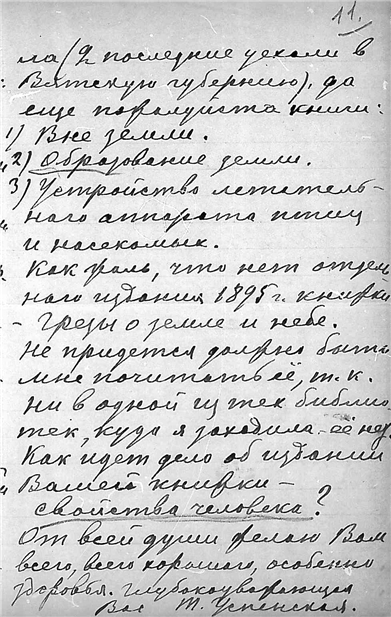 11.
ла (2 последние уехали в
Вятскую губернию), да
еще пожалуйста книги:
1) Вне земли.
2) Образование земли.
3) Устройство летатель-
ного аппарата птиц
и насекомых.
Как жаль, что нет отдель
ного издания 1895 г. книжки
- Грезы о земле и небе.
Не придется должно быть
мне почитать её, т.к.
ни в одной из тех библио
тек, куда я заходила - её нет.
Как идет дело об издании
Вашей книжки -
свойства человека?
От всей души желаю Вам
всего, всего хорошего, особенно
здоровья. Глубокоуважающая
Вас Т. Успенская.